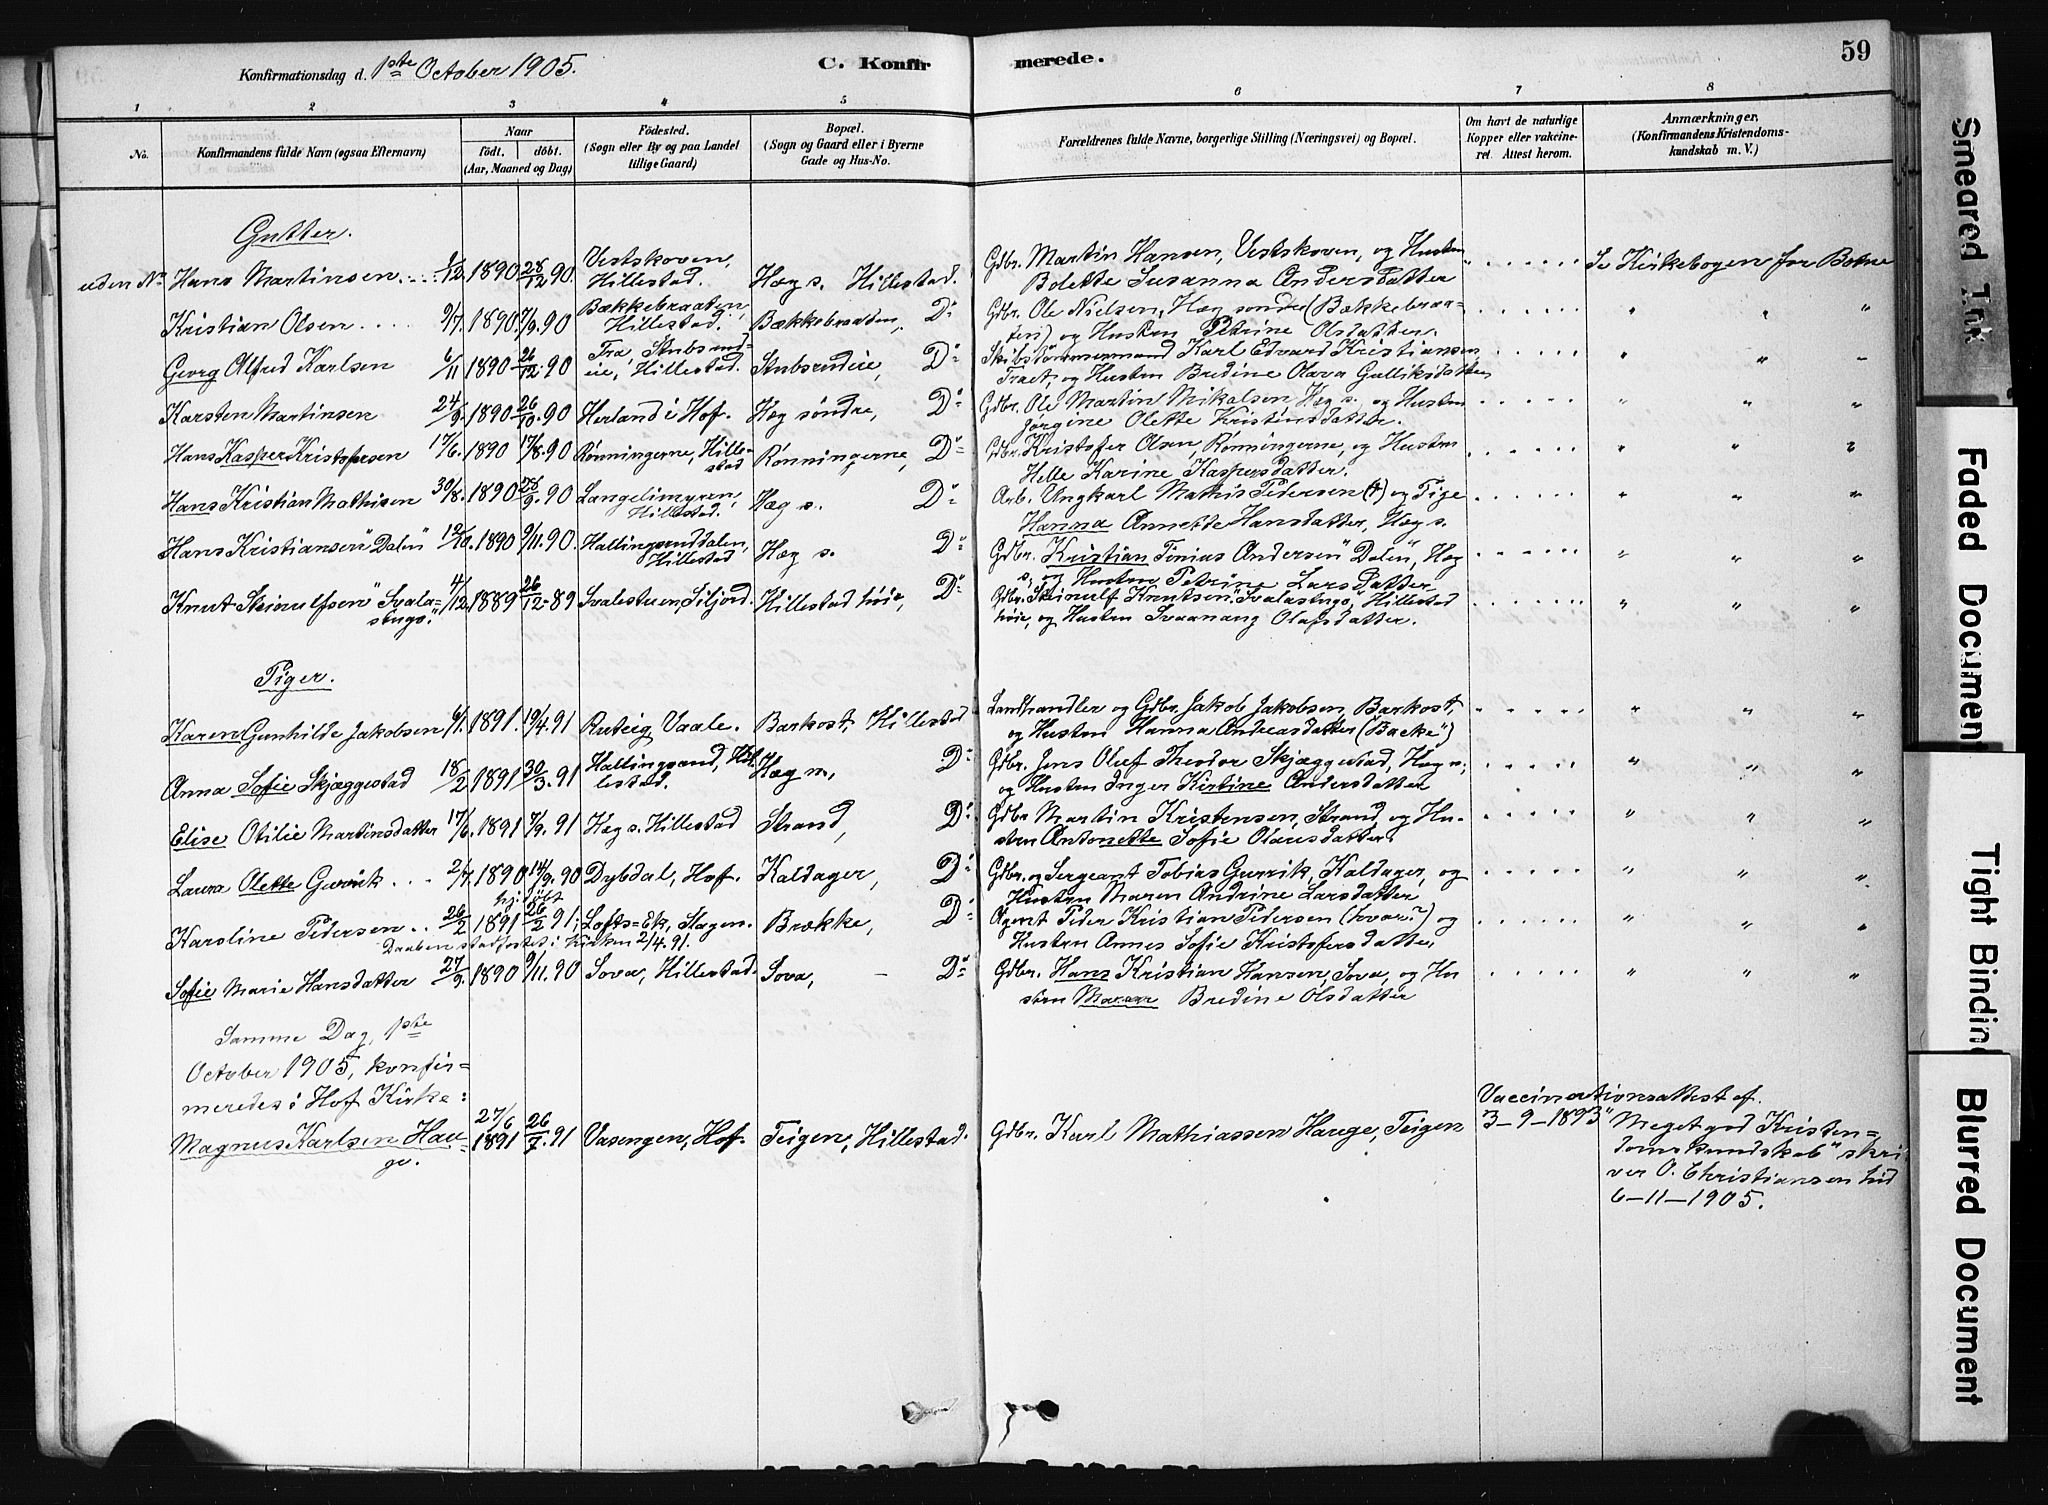 Konfirmationsdag d. 1ste October 1905.
C. Konfirmerede.
59
1 2 3 4 5 6 7 8
No.
Konfirmandens fulde Navn (ogsaa Efternavn)
Naar
født, døbt.
(Aar, Maaned og Dag)
Fødested.
(Sogn eller By og paa Landet
tillige Gaard)
Bopæl.
(Sogn og Gaard eller i Byerne
Gade og Hus-No.
Forældrenes fulde Navne, borgerlige Stilling (Næringsvei) og Bopæl.
Om havt de naturlige
Kopper eller vakcine-
ret. Attest herom.
Anmærkninger,
(Konfirmandens Kristendoms-
kundskab m. V.)
Gutter.
uden No. Hans Martinsen.... 1/12. 1890. 28/12. 90. Vestskoven, Hillestad. Hæg s. Hillestad. Gdbr. Martin Hansen, Vestskoven, og Hustru
Bolette Susanna Andersdatter ...... Se Kirkebogen for Botne
Kristian Olsen .... 9/7. 1890. 7/9. 90 Bækkebraaten, Hillestad. Bækkebraaten, Do Gdbr. Ole Nielsen, Hæg søndre (Bækkebraa-
ten) og Hustru Petrine Olsdatter. ...... " " "
Georg Alfred Karlsen 6/11 1890 26/12. 90 Fra, Stubsrud-
eie, Hillestad. Stubsrudeie, Do Skibstømmermand Karl Edvard Kristiansen,
Fraet, og Hustru Bredine Olava Gulliksdatter ...... " " "
Karsten Martinsen 24/9. 1890. 26/10. 90 Herland i Hof. Hæg søndre, Do Gdbr. Ole Martin Mikalsen Hæg s., og Hustru
Jørgine Olette Kristinsdatter. ...... " " "
Hans Kasper Kristofersen 17/6. 1890 17/8. 90 Rønningerne, Hille-
stad Rønningerne, Do Gdbr. Kristofer Olsen, Rønningerne, og Hustru
Helle Karine Kaspersdatter. ...... " " "
Hans Kristian Mathisen 30/8. 1890. 28/9. 90 Langelimyren, Hillestad. Hæg s. Do Arb. Ungkarl Mathis Pedersen (†) og Pige
Hanna Annette Hansdatter, Hæg s. ...... " " "
Hans Kristiansen "Dalen" 12/10. 1890 9/11. 90. Hallingsruddalen, Hillestad Hæg s. Do Gdbr. Kristian Tinius Andersen "Dalen", Hæg
s., og Hustru Petrine Larsdatter ...... " " "
Knut Steinulfsen "Svala-
stugo." 4/12. 1889 26/12. 89 Svalestuen, Siljord. Hillestad høie, Do Gdbr. Steinulf Knutsen "Svalastugo," Hillestad
høie, og Hustru Svaanaug Olafsdatter. ...... " " "
Piger.
Karen Gunhilde Jakobsen 6/1. 1891. 19/4. 91 Ruteig, Vaale. Barkost, Hillestad Landhandler og Gdbr. Jakob Jakobsen, Barkost,
og Hustru Hanna Andreasdatter ("Backe") ...... " " "
Anna Sofie Skjæggestad 18/2 1891 30/3. 91 Hallingsrud, Hil-
lestad. Hæg n., Do Gdbr. Jens Olaf Theodor Skjæggestad, Hæg n.,
og Hustru Inger Kirtine Andersdatter ...... " " "
Elise Otilie Martinsdatter 17/6. 1891 7/9. 91 Hæg s. Hillestad Strand, Do Gdbr Martin Kristensen, Strand, og Hu-
stru Antonette Sofie Olausdatter. ...... " " "
Laura Olette Gurrik ... 2/7. 1890. 14/9. 90 Dybdal, Hof. Kaldager, Do Gdbr. og Sergeant Tobias Gurrik, Kaldager, og
Hustru Maren Andrine Larsdatter ...... " " "
Karoline Pedersen .. 26/2 1891 hj. døbt 26/2 91; Lofts=Ek, Slagen. Brække, Do Agent Peder Kristian Pedersen og
Hustru Annes Sofie Kristofersdatter, ...... " " "
Daaben stadfæstet i Kirken 2/4. 91.
Sofie Marie Hansdatter 27/9. 1890 9/11. 90 Sova, Hillestad. Sova, — Do Gdbr. Hans Kristian Hansen, Sova, og Hu
stru Maren Bredine Olsdatter ...... " " "
Samme Dag, 1ste
October 1905, konfir=
meredes i Hof Kirke:
Magnus Karlsen Hau=
ge. 27/6 1891 26/7. 91 Vasengen, Hof. Teigen, Hillestad. Gdbr. Karl Mathiassen Hauge, Teigen
Vaccinationsattest af
3-9-1893
"Meget god Kristen=
domskundskab" skri
ver O. Christiansen hid
6-11-1905.
Smeared Ink
Faded Document
Tight Bindin
Blurred Document